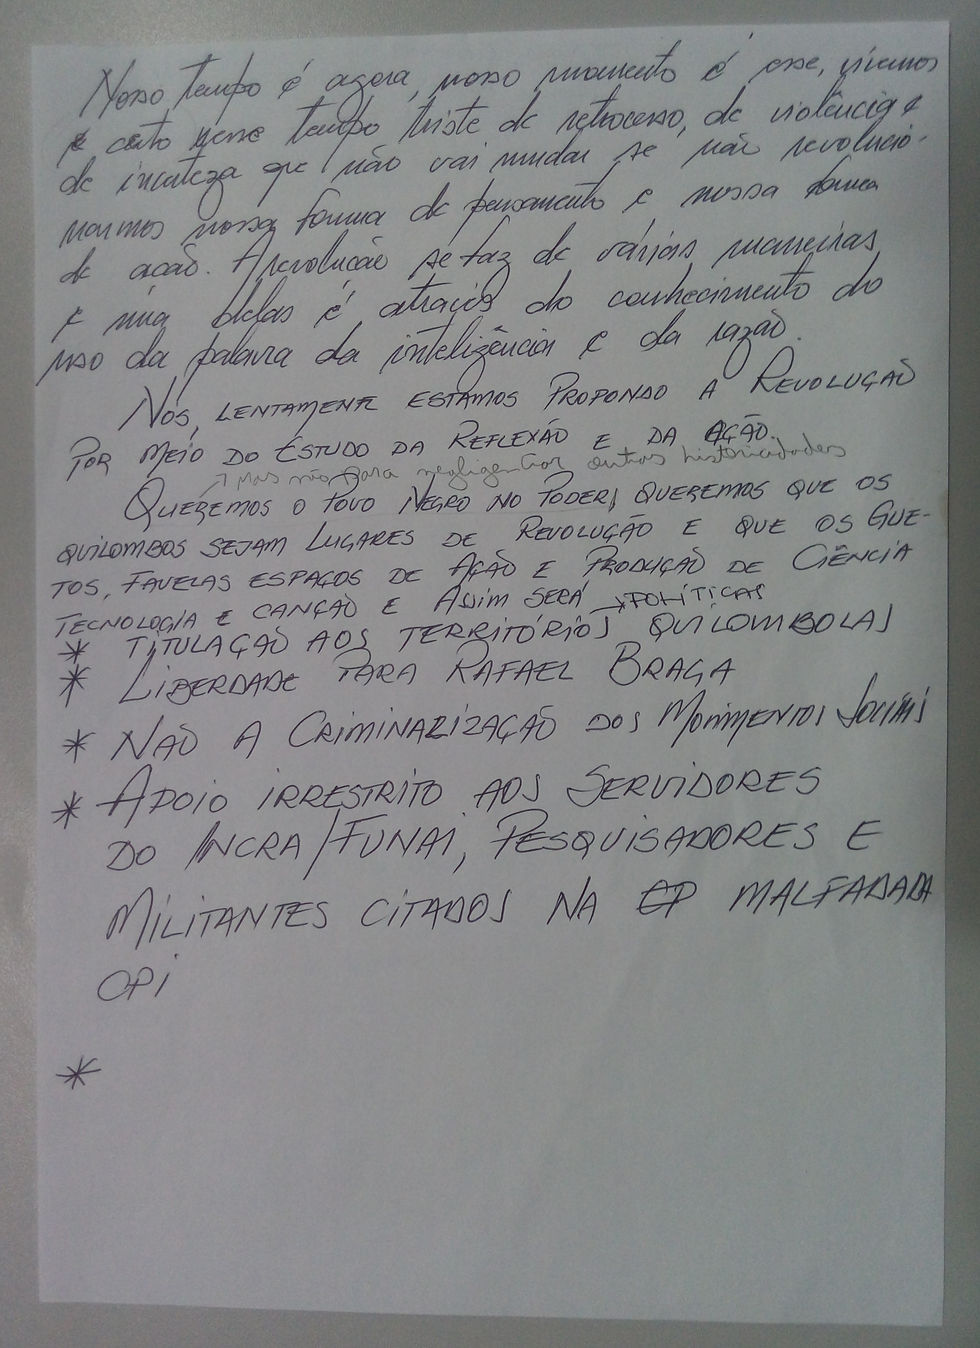 Nosso tempo é agora, nosso momento é esse, vivemos
é certo nesse tempo triste de retrocesso, de violência e
de incerteza que não vai mudar se não revolucio-
narmos nossa forma de pensamento e nossa forma
de ação. A revolução se faz de várias maneiras
e uma delas é através do conhecimento do
uso da palavra da inteligência e da razão.
NÓS, LENTAMENTE ESTAMOS PROPONDO A REVOLUÇÃO
POR MEIO DO ESTUDO DA REFLEXÃO E DA AÇÃO.
mas não para negligenciar outras historicidades
QUEREMOS O POVO NEGRO NO PODER, QUEREMOS QUE OS
QUILOMBOS SEJAM LUGARES DE REVOLUÇÃO E QUE OS GUE-
TOS, FAVELAS ESPAÇOS DE AÇÃO E PRODUÇÃO DE CIÊNCIA
TECNOLOGIA E CANÇÃO E ASSIM SERÁ → POLÍTICAS
* TITULAÇÃO AOS TERRITÓRIOS QUILOMBOLAS
* LIBERDADE PARA RAFAEL BRAGA
* NÃO A CRIMINALIZAÇÃO DOS MOVIMENTOS SOCIAIS
* APOIO IRRESTRITO AOS SERVIDORES
DO INCRA/FUNAI, PESQUISADORES E
MILITANTES CITADOS NA MALFADADA
CPI
*